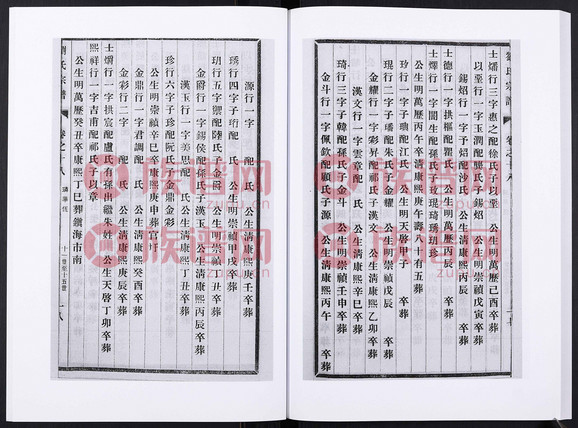 士燸行三字惠之配徐氏子以奎 公生明萬歷己酉卒葬
以奎行一字玉潤配龐氏子錫炤 公生明崇禎戊寅卒葬
錫炤行一字予焜配沙氏 公生清康熙丙辰 卒葬
士德行一字拱樞配瞿氏 公生明萬歷丙辰 卒葬
士燡行一字闇生配孫氏子玫琨琦璣玢珍
公生明萬歷丙午卒清康熙庚午壽八十有五葬
玫行一字瑞配江氏 公生明天啓甲子 卒葬
琨行二字子璠配朱氏子金耀 公生明崇禎戊辰 卒葬
金耀行一字彩昇配孫氏子漢文 公生清康熙乙卯 卒葬
漢文行一字雲章配 氏 公生清康熙辛巳卒葬
琦行三字子韓配孫氏子金斗 公生明崇禎壬申卒葬
金斗行一字佩欽配顧氏子源 公生清康熙丙午 卒葬
源行一字 配 氏 公生清康熙庚壬卒葬
璣行四字子珩配 氏 公生明崇禎甲戌卒葬
玥行五字 配陸氏子金爵 公生明崇禎丁丑卒葬
金爵行一字錫侯配孫氏子漢玉 公生清康熙丙辰卒葬
漢玉行一字美思配 氏 公生清康熙丁丑卒葬
珍行六字子珍配阮氏子金鼎金彩
公生明崇禎辛巳卒康熙庚申葬官圩
金鼎行一字君調配 氏 公生清康熙癸酉卒葬
金彩行二字 配 氏 公生清康熙庚辰卒葬
士爝行一字拱宸配盧氏有孫出繼朱姓 公生天啓丁卯卒葬
熙祥行一字吉甫配祁氏子以章
公生明萬歷癸丑卒康熙丁巳葬鎮海市南
劉氏宗譜
卷之十八
十一世至十五世
十八
族谱网